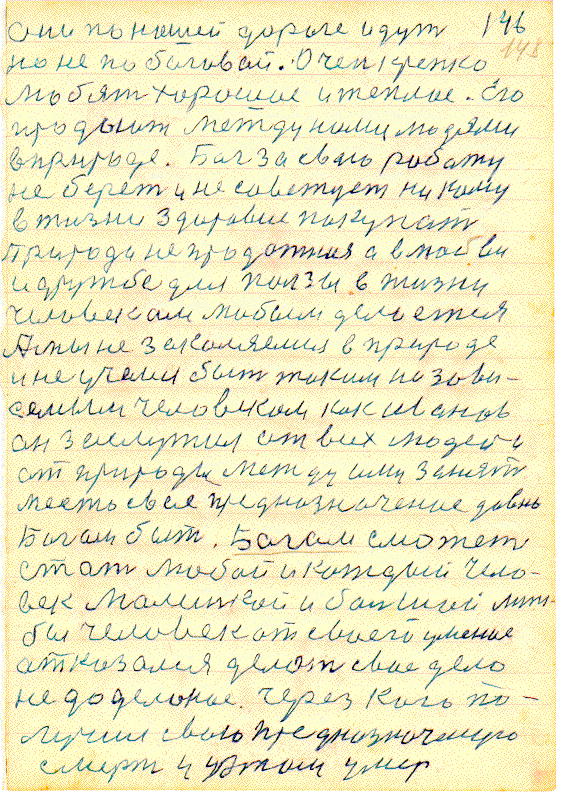 они по нашей дороге идут 146
148
но не по боговой. Очен крепко
любят хорошое и теплое. Его
продают между нами людями
в природе. Бог за свою работу
не берет и не советует никому
в жизни здоровие покупат
природа не продажная а в любви
и дружбе для ползы в жизни
человекам любым делается
А мы не закаляемся в природе
и не учемся быт таким незови-
семым человеком как Иванов
он заслужил от всех людей и
от природы между ими занят
место свое предназначение давно
Богом быт. Богом сможет
стат любой и каждый чело-
век маленкой и болшой лиш-
бы человек от своего умение
отказался делат свое дело
не доделоное. Через кого по-
лучил свою предназначеную
смерт и умер